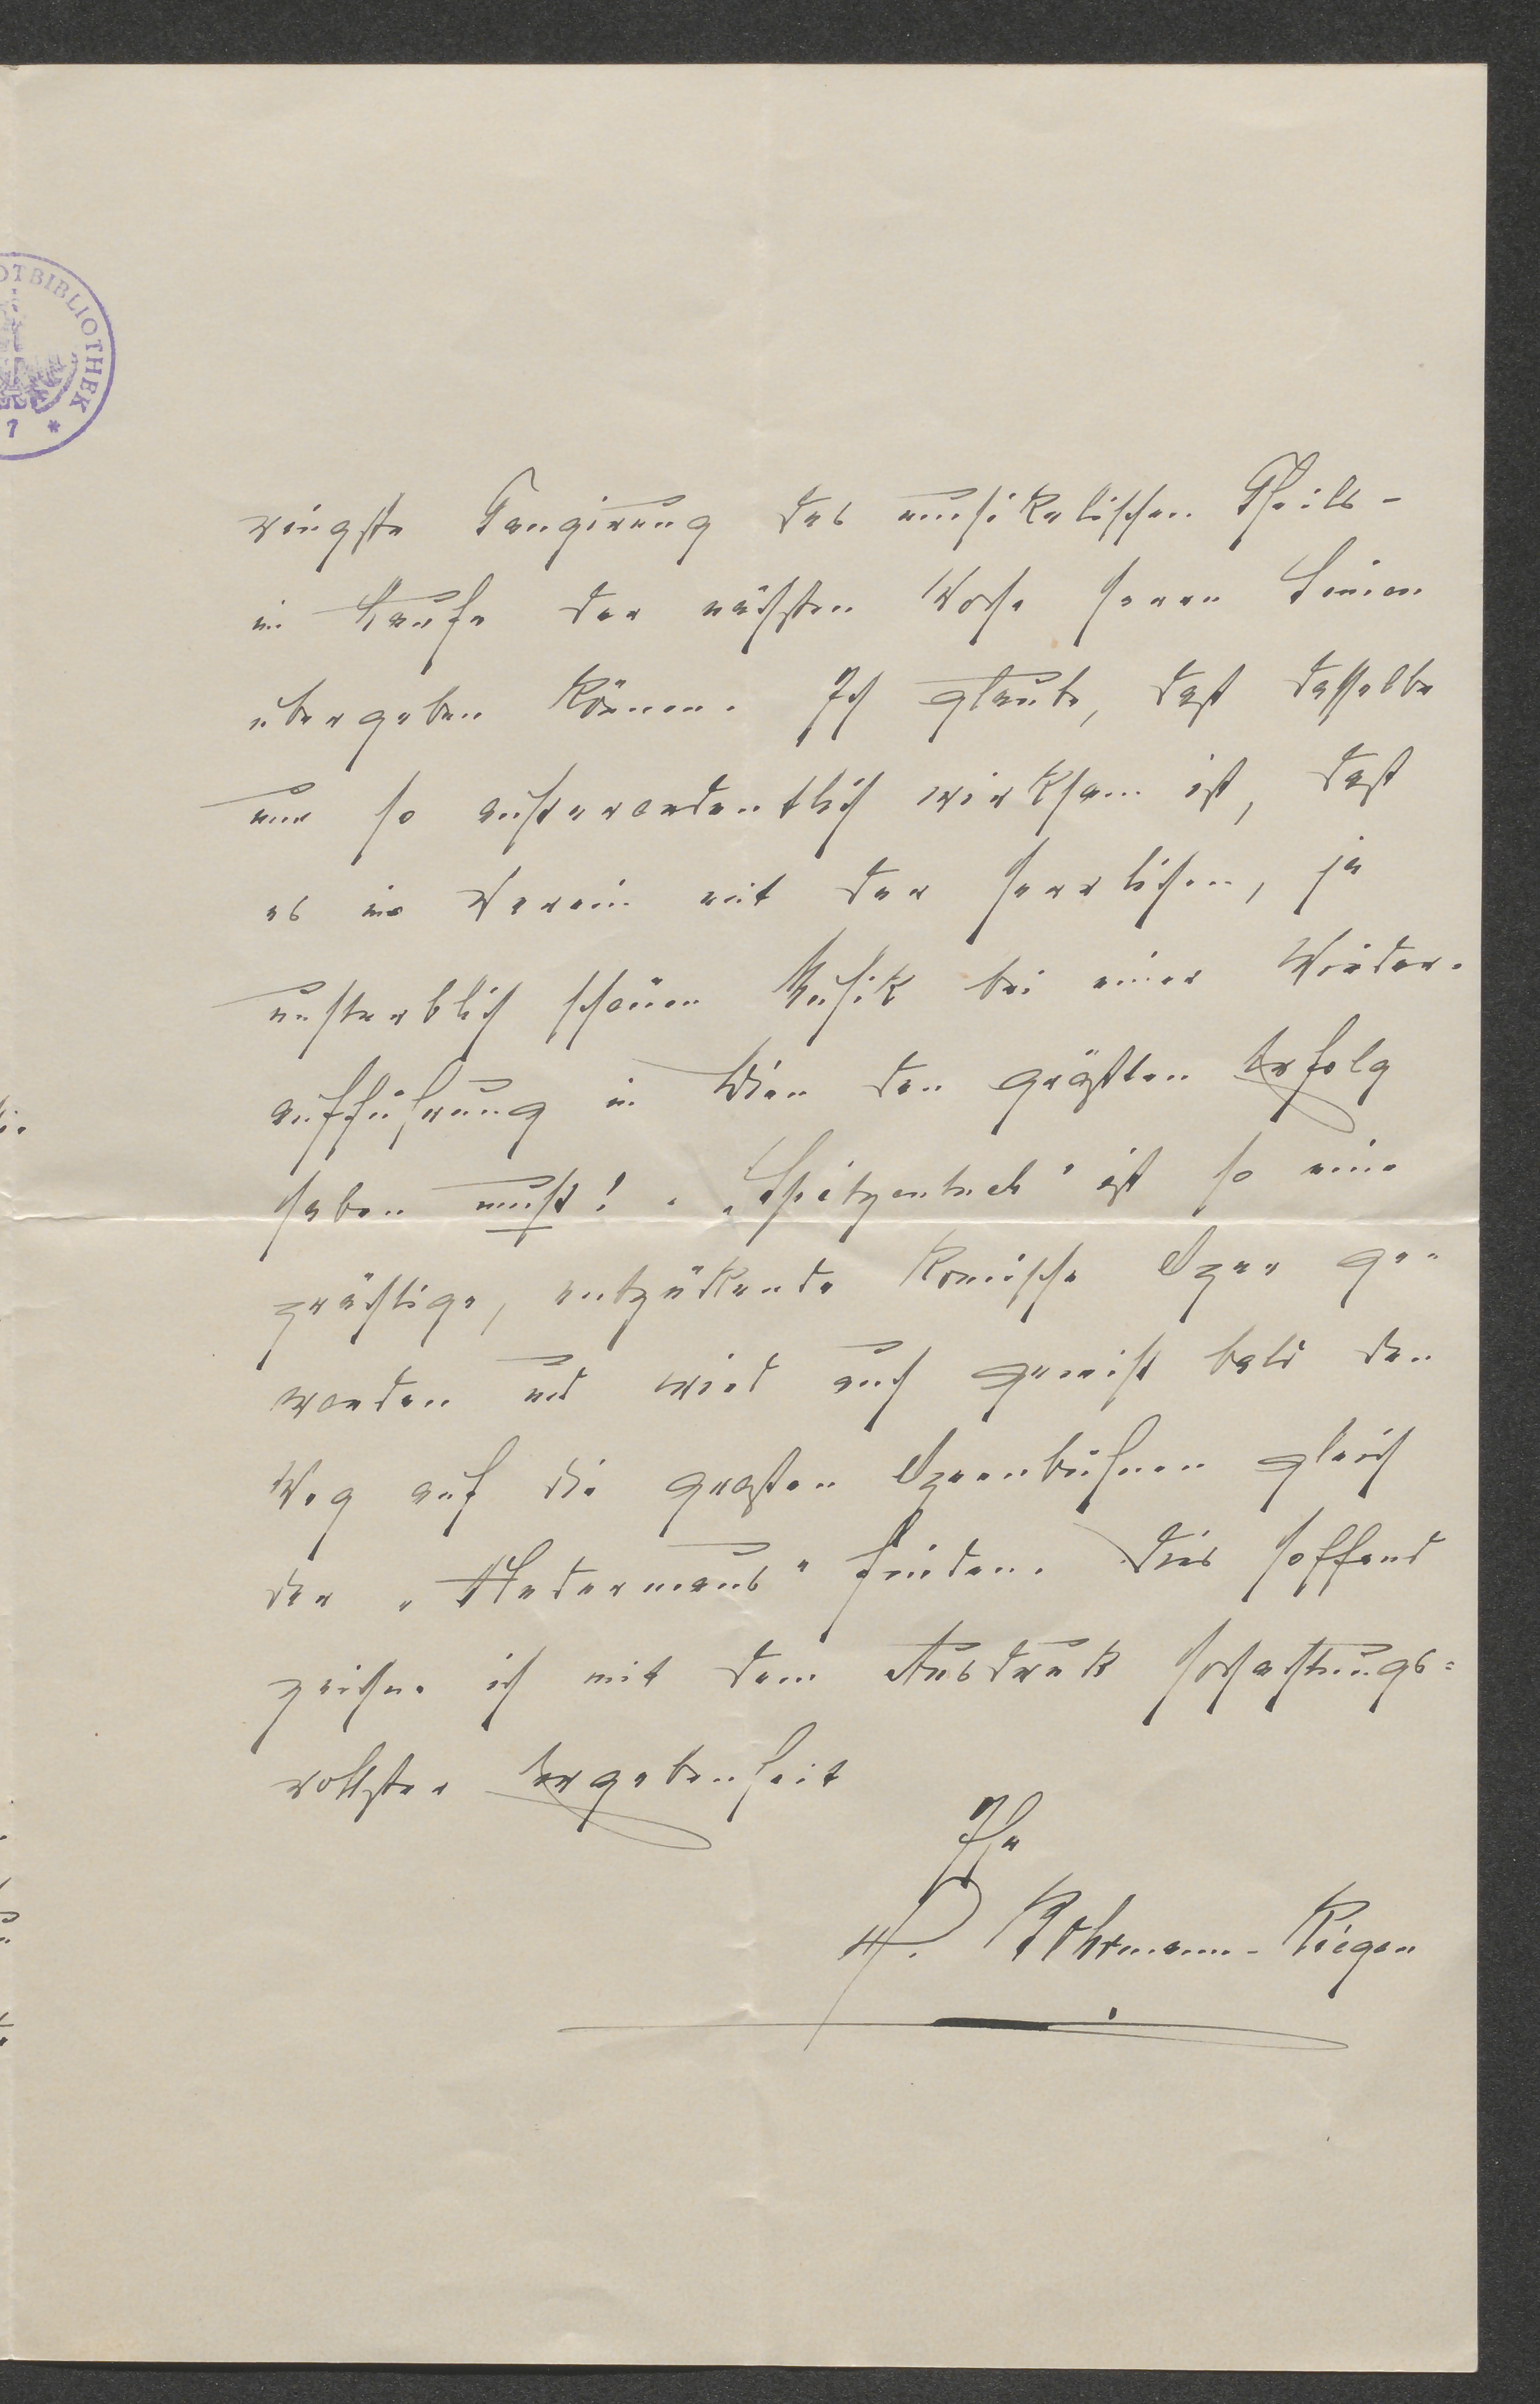 OTBIBLIOTHEK
7 *
ringste Tangirung des musikalischen Theils –
im Laufe der nächsten Woche Herrn Simon
übergeben können. Ich glaube, daß dasselbe
nun so außerordentlich wirksam ist, daß
es im Verein mit der herrlichen, ja
unsterblich schönen Musik bei einer Wieder-
aufführung in Wien den größten Erfolg
haben muß! „Spitzentuch" ist so eine
prächtige, entzückende komische Oper ge-
worden und wird auch gewiß bald den
Weg auf die großen Opernbühnen gleich
der „Fledermaus" finden. Dies hoffend
zeichne ich mit dem Ausdruck hochachtungs=
vollster Ergebenheit
Ihr
Bohrmann-Riegen